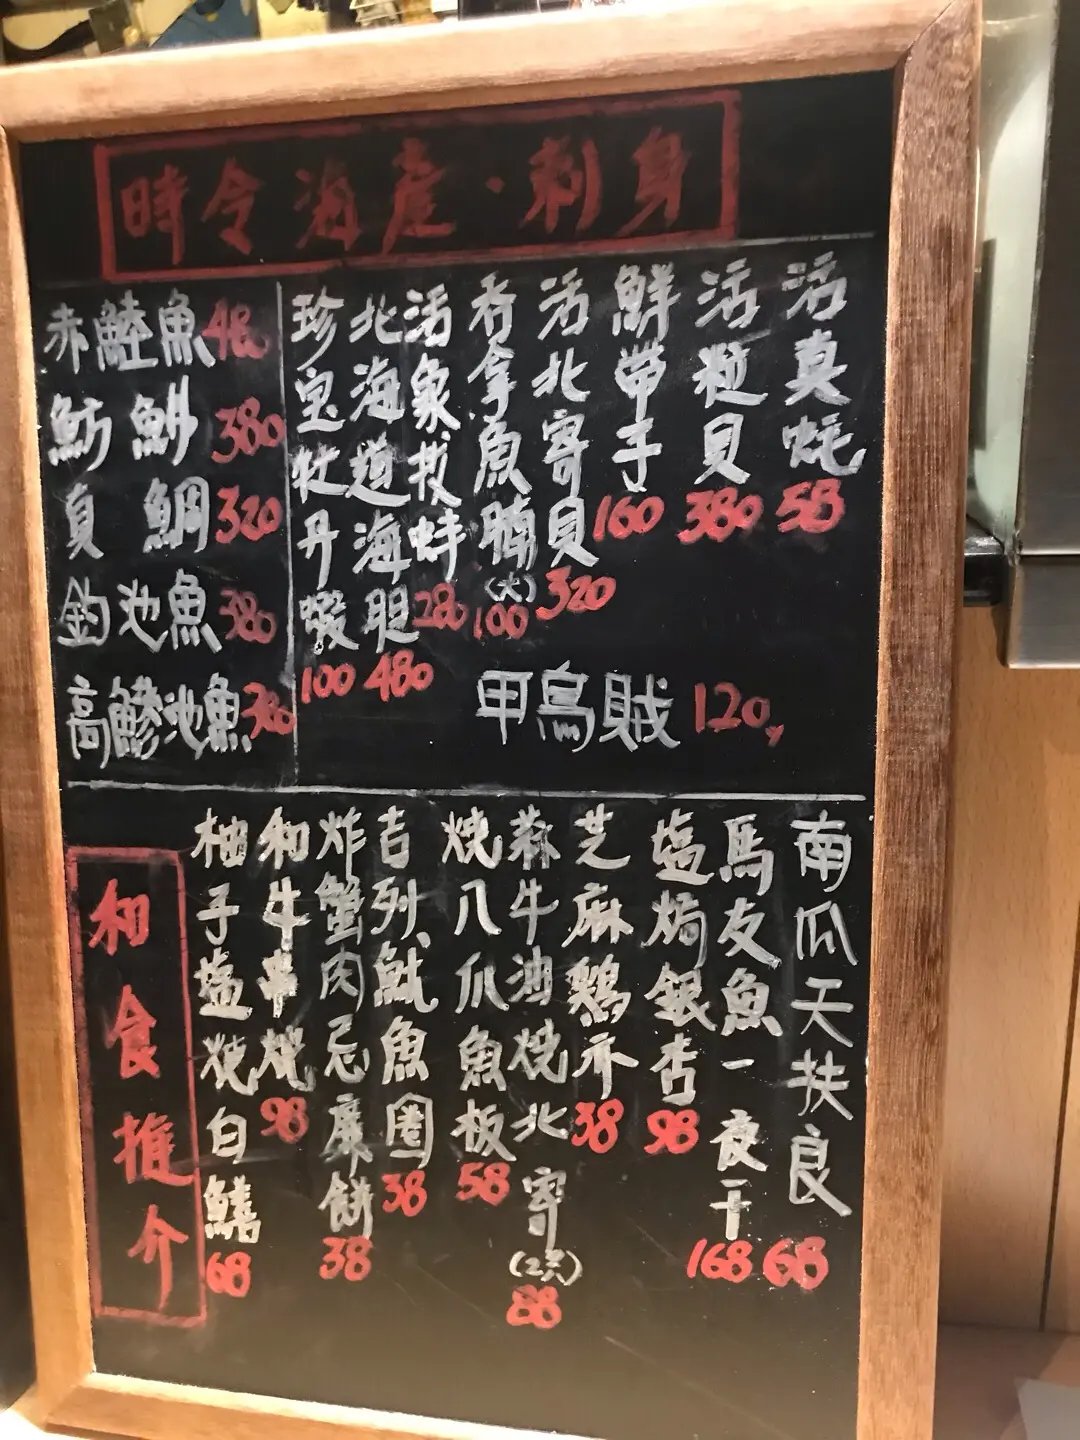 時令海產·刺身
活真蚝 58
活粒貝 380
鮮帶子 160
活北寄貝 320
吞拿魚腩(大) 100
活象拔蚌 280
北海道海胆 480
珍宝牡丹蝦 100
甲烏賊 120
赤鯥魚 48
魴鮄 380
真鯛 320
釣池魚 380
高鰺池魚 380
和食推介
南瓜天扶良 68
馬友魚一夜干 168
塩焗銀杏 98
芝麻鷄亦 38
蒜牛油燒北寄(2只) 88
燒八爪魚板 58
吉列魷魚圈 38
炸蟹肉忌廉餅 38
和牛串燒 98
柚子塩燒白鱔 68